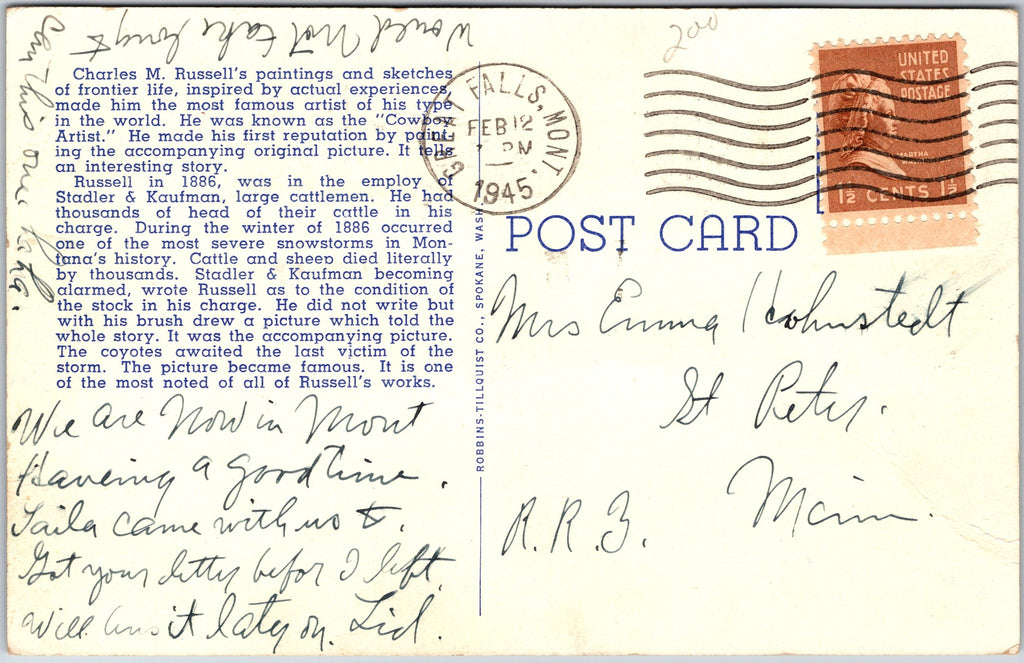 200
Would Not take long to
Charles M. Russell's paintings and sketches
of frontier life, inspired by actual experiences,
made him the most famous artist of his type
in the world. He was known as the "Cowboy
Artist." He made his first reputation by paint-
ing the accompanying original picture. It tells
an interesting story.
Russell in 1886, was in the employ of
Stadler & Kaufman, large cattlemen. He had
thousands of head of their cattle in his
charge. During the winter of 1886 occurred
one of the most severe snowstorms in Mon-
tana's history. Cattle and sheep died literally
by thousands. Stadler & Kaufman becoming
alarmed, wrote Russell as to the condition of
the stock in his charge. He did not write but
with his brush drew a picture which told the
whole story. It was the accompanying picture.
The coyotes awaited the last victim of the
storm. The picture became famous. It is one
of the most noted of all of Russell's works.
We are Now in Mont
Haveing a good time.
came with us
Got your letter befor I left
will it later on. Lid.
this one
ROBBINS-TILLQUIST CO., SPOKANE, WASH.
GREAT FALLS, MONT.
FEB 12
PM
1945
UNITED
STATES
POSTAGE
MARTHA
1½ CENTS 1½
POST CARD
Mrs Emma Hohnstedt
St Peter.
Minn.
R.R.3.